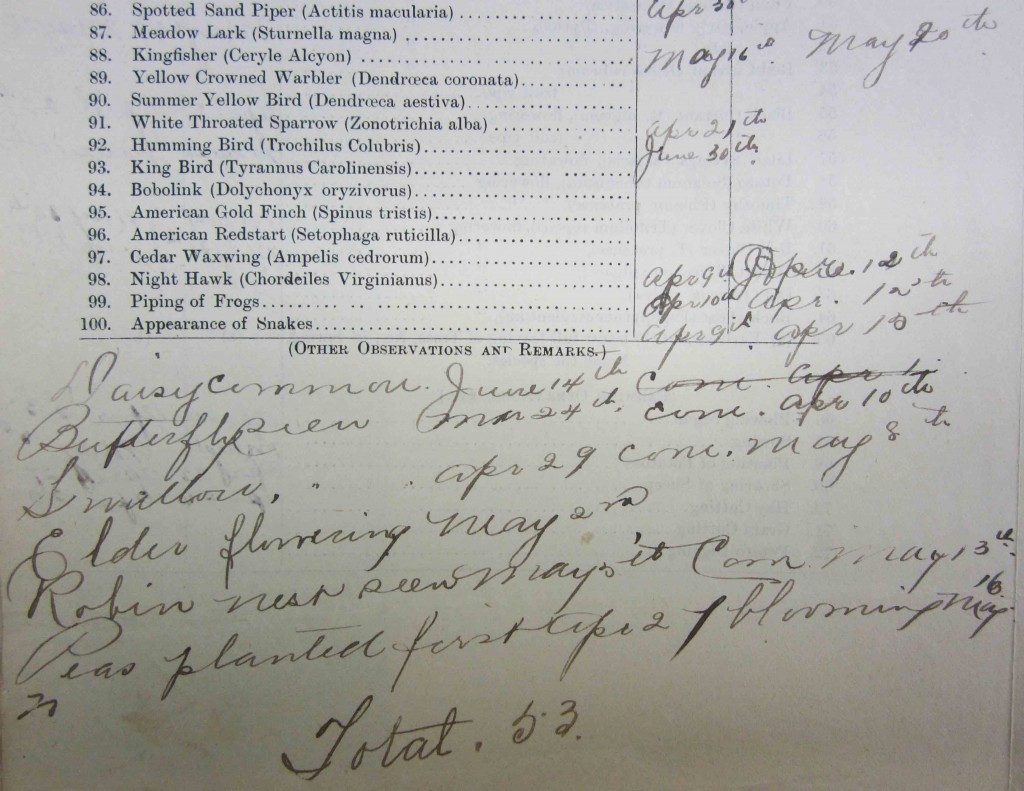 86. Spotted Sand Piper (Actitis macularia) apr 30th
87. Meadow Lark (Sturnella magna)
88. Kingfisher (Ceryle Alcyon) May 16th May 20th
89. Yellow Crowned Warbler (Dendrœca coronata)
90. Summer Yellow Bird (Dendrœca aestiva)
91. White Throated Sparrow (Zonotrichia alba) apr 21th
92. Humming Bird (Trochilus Colubris) June 30th
93. King Bird (Tyrannus Carolinensis)
94. Bobolink (Dolychonyx oryzivorus)
95. American Gold Finch (Spinus tristis)
96. American Redstart (Setophaga ruticilla)
97. Cedar Waxwing (Ampelis cedrorum)
98. Night Hawk (Chordeiles Virginianus) apr 9th 12th
99. Piping of Frogs apr 10th apr. 12th
100. Appearance of Snakes apr 9th apr 15th
(Other Observations and Remarks.)
Daisy common. June 14th com. apr
Butterfly seen mar 24th. com. apr 10th
Swallow. " apr 29 com. May 8th
Elder flowering May 2nd
Robin nest seen May 5th Com May 13th
Peas planted first apr 21 blooming May 16
Total. 53.